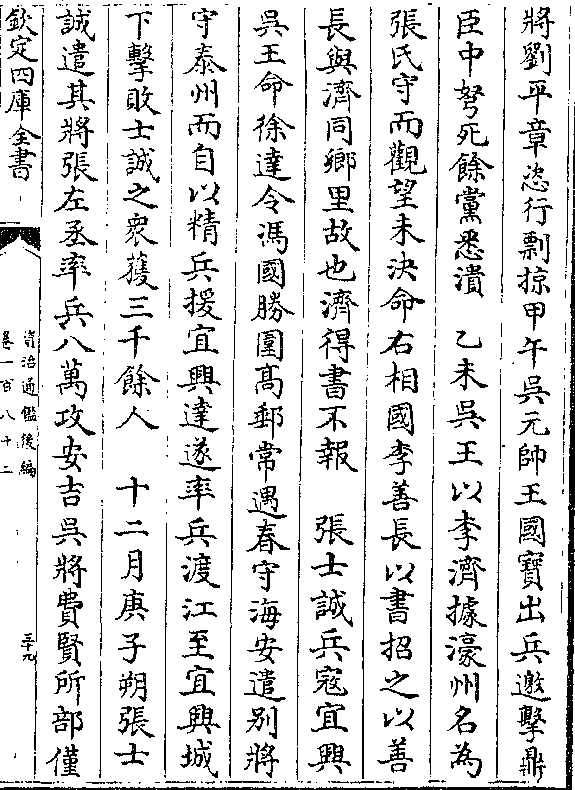 將劉平章恣行剽掠甲午吳元帥王國寶出兵邀擊鼎
臣中弩死餘黨悉潰　乙未吳王以李濟據濠州名為
張氏守而觀望未決命右相國李善長以書招之以善
長與濟同鄉里故也濟得書不報　張士誠兵寇宜興
吳王命徐達令馮國勝圍高郵常遇春守海安遣别將
守泰州而自以精兵援宜興達遂率兵渡江至宜興城
下擊敗士誠之衆獲三千餘人　十二月庚子朔張士
誠遣其將張左丞率兵八萬攻安吉吳將費賢所部僅
欽定四庫全書
資治通鑑後編
卷一百八十二
三十九